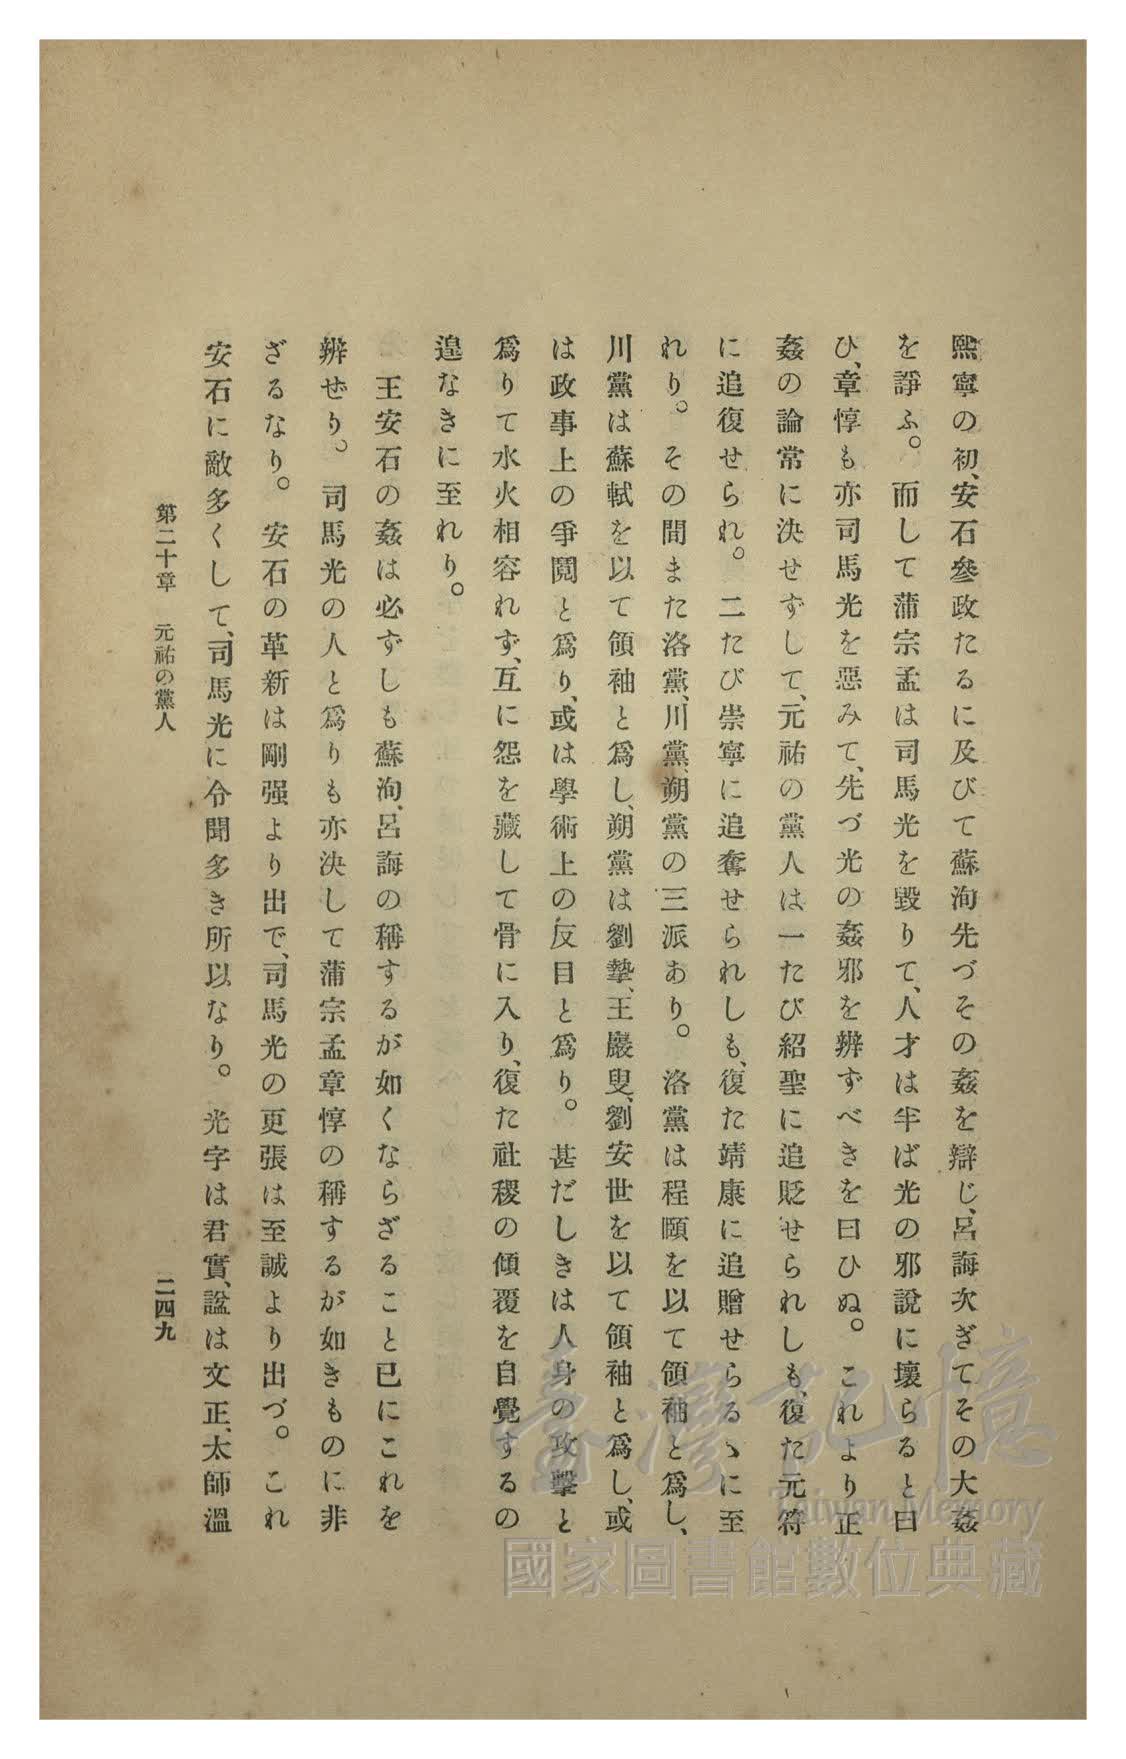 熙寧の初、安石參政たるに及びて蘇洵先づその姦を辯じ、呂誨次ぎてその大姦
を諍ふ。而して蒲宗孟は司馬光を毀りて、人才は半ば光の邪說に壞らると曰
ひ、章惇も亦司馬光を惡みて、先づ光の姦邪を辨ずべきを曰ひぬ。これより正
姦の論常に決せずして、元祐の黨人は一たび紹聖に追貶せられしも、復た元符
に追復せられ。二たび崇寧に追奪せられしも、復た靖康に追贈せらるゝに至
れり。その間また洛黨、川黨、朔黨の三派あり。洛黨は程頤を以て領袖と爲し、
川黨は蘇軾を以て領袖と爲し、朔黨は劉摯、王巖叟、劉安世を以て領袖と爲し、或
は政事上の爭鬩と爲り、或は學術上の反目と爲り。甚だしきは人身の攻擊と
爲りて水火相容れず、互に怨を藏して骨に入り、復た社稷の傾覆を自覺するの
遑なきに至れり。
王安石の姦は必ずしも蘇洵、呂誨の稱するが如くならざること已にこれを
辨ぜり。司馬光の人と爲りも亦決して蒲宗孟章惇の稱するが如きものに非
ざるなり。安石の革新は剛强より出で、司馬光の更張は至誠より出づ。これ
安石に敵多くして、司馬光に令聞多き所以なり。光字は君實、諡は文正、太師溫
第二十章 元祐の黨人
二四九
臺灣記憶
Taiwan Memory
國家圖書館數位典藏